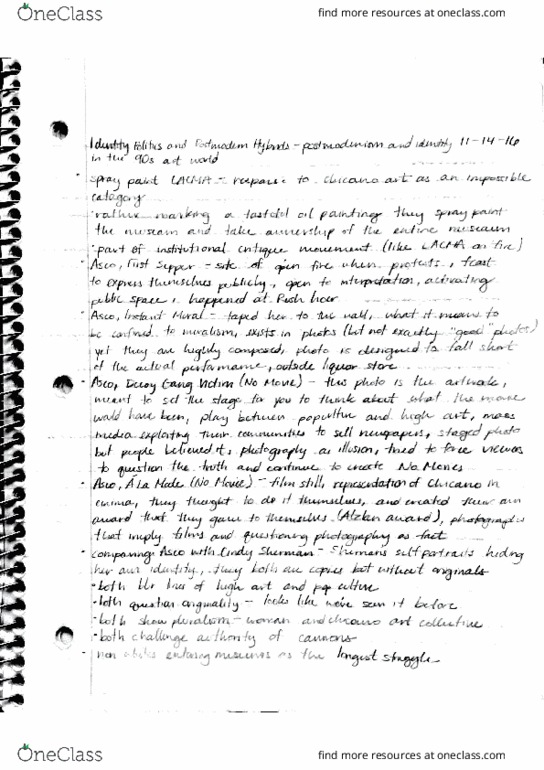 OneClass
find more resources at oneclass.com
Identity Politics and Postmodern Hybrids - postmodernism and identity 11-14-16
in the 90s art world
• spray paint LACMA - response to chicano art as an impossible
category
• rather making a tasteful oil painting they spray paint
the museum and take ownership of the entire museum
• part of institutional critique movement (like LACMA on fire)
• Asco, First Supper - site of open fire when protests, feast
to express themselves publicly, open to interpretation, activating
public space, happened at Rush hour
• Asco, Instant Mural - taped her to the wall, what it means to
be confined to muralism, exists in photos (but not exactly "good" photos)
yet they are highly composed, photo is designed to fall short
of the actual performance, outside liquor store
• Asco, Decoy Gang Victim (No Movie) - this photo is the artwork,
meant to set the stage for you to think about what the movie
would have been, play between popculture and high art, mass
media exploiting their communities to sell newspapers, staged photo
but people believed it, photography as illusion, tried to force viewers
to question the truth and continue to create No Movies
• Asco, Á La Mode (No Movie) - film still, representation of Chicano in
cinema, they thought to do it themselves, and created their own
award that they gave to themselves (Aztlan award), photographs
that imply films and questioning photography as fact
• comparing Asco with Cindy Sherman - Shermans self portraits hiding
her own identity, they both are copies but without originals
• both blur lines of high art and pop culture
• both question originality - looks like we've seen it before
• both show pluralism - woman and chicano art collective
• both challenge authority of cannons
• non entering museums as the longest struggle
OneClass
find more resources at oneclass.com